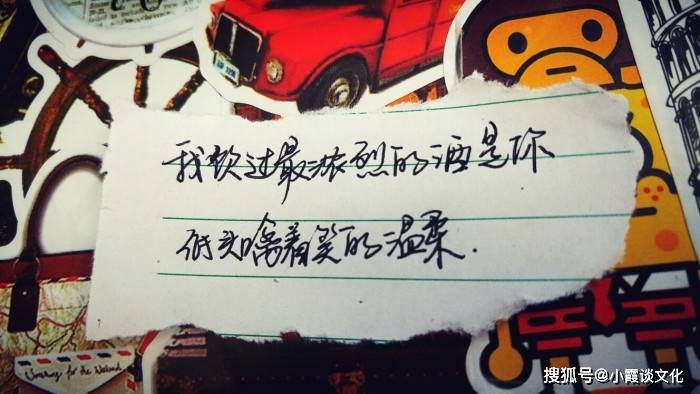 我饮过最浓烈的酒是你
低头噙着笑的温柔.
Working for the Weekend
搜狐号@小霞谈文化